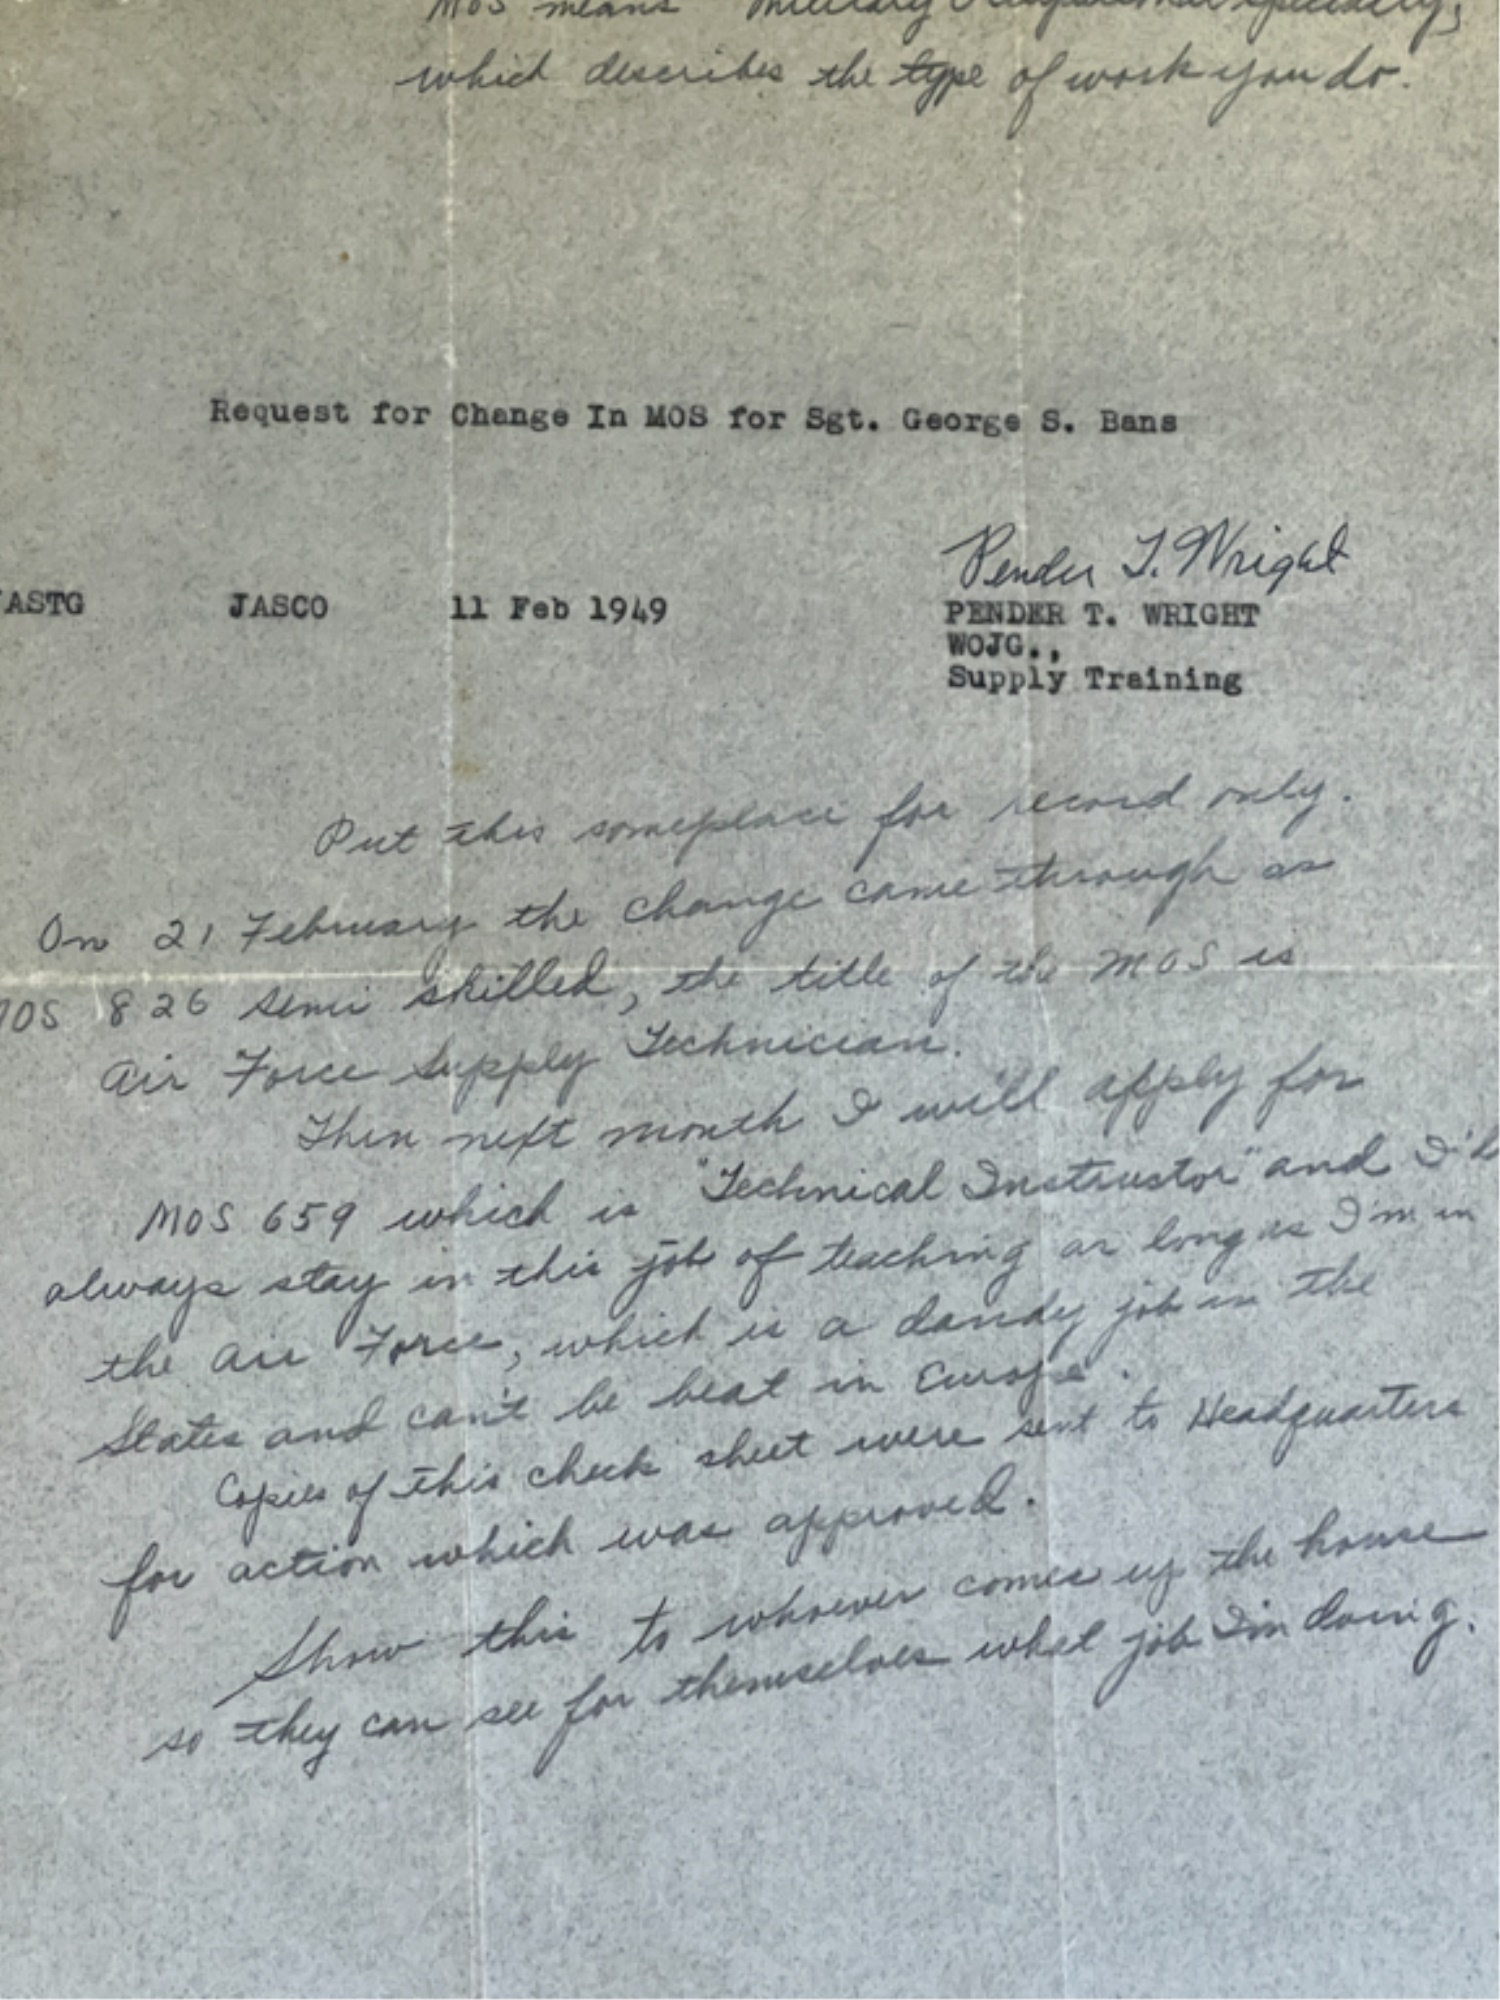 MOS means "Military Occupational Specialty,
which describes the type of work you do.
Request for Change In MOS for Sgt. George S. Bans
Pender T. Wright
ASTG JASCO 11 Feb 1949
PENDER T. WRIGHT
WOJG.,
Supply Training
Put this someplace for record only.
On 21 February the change came through as
MOS 826 semi skilled, the title of the MOS is
Air Force Supply Technician.
Then next month I will apply for
MOS 659 which is "Technical Instructor" and I'll
always stay in this job of teaching as long as I'm in
the Air Force, which is a dandy job in the
States and can't be beat in Europe.
Copies of this check sheet were sent to Headquarters
for action which was approved.
Show this to whoever comes up the house
so they can see for themselves what job I'm doing.